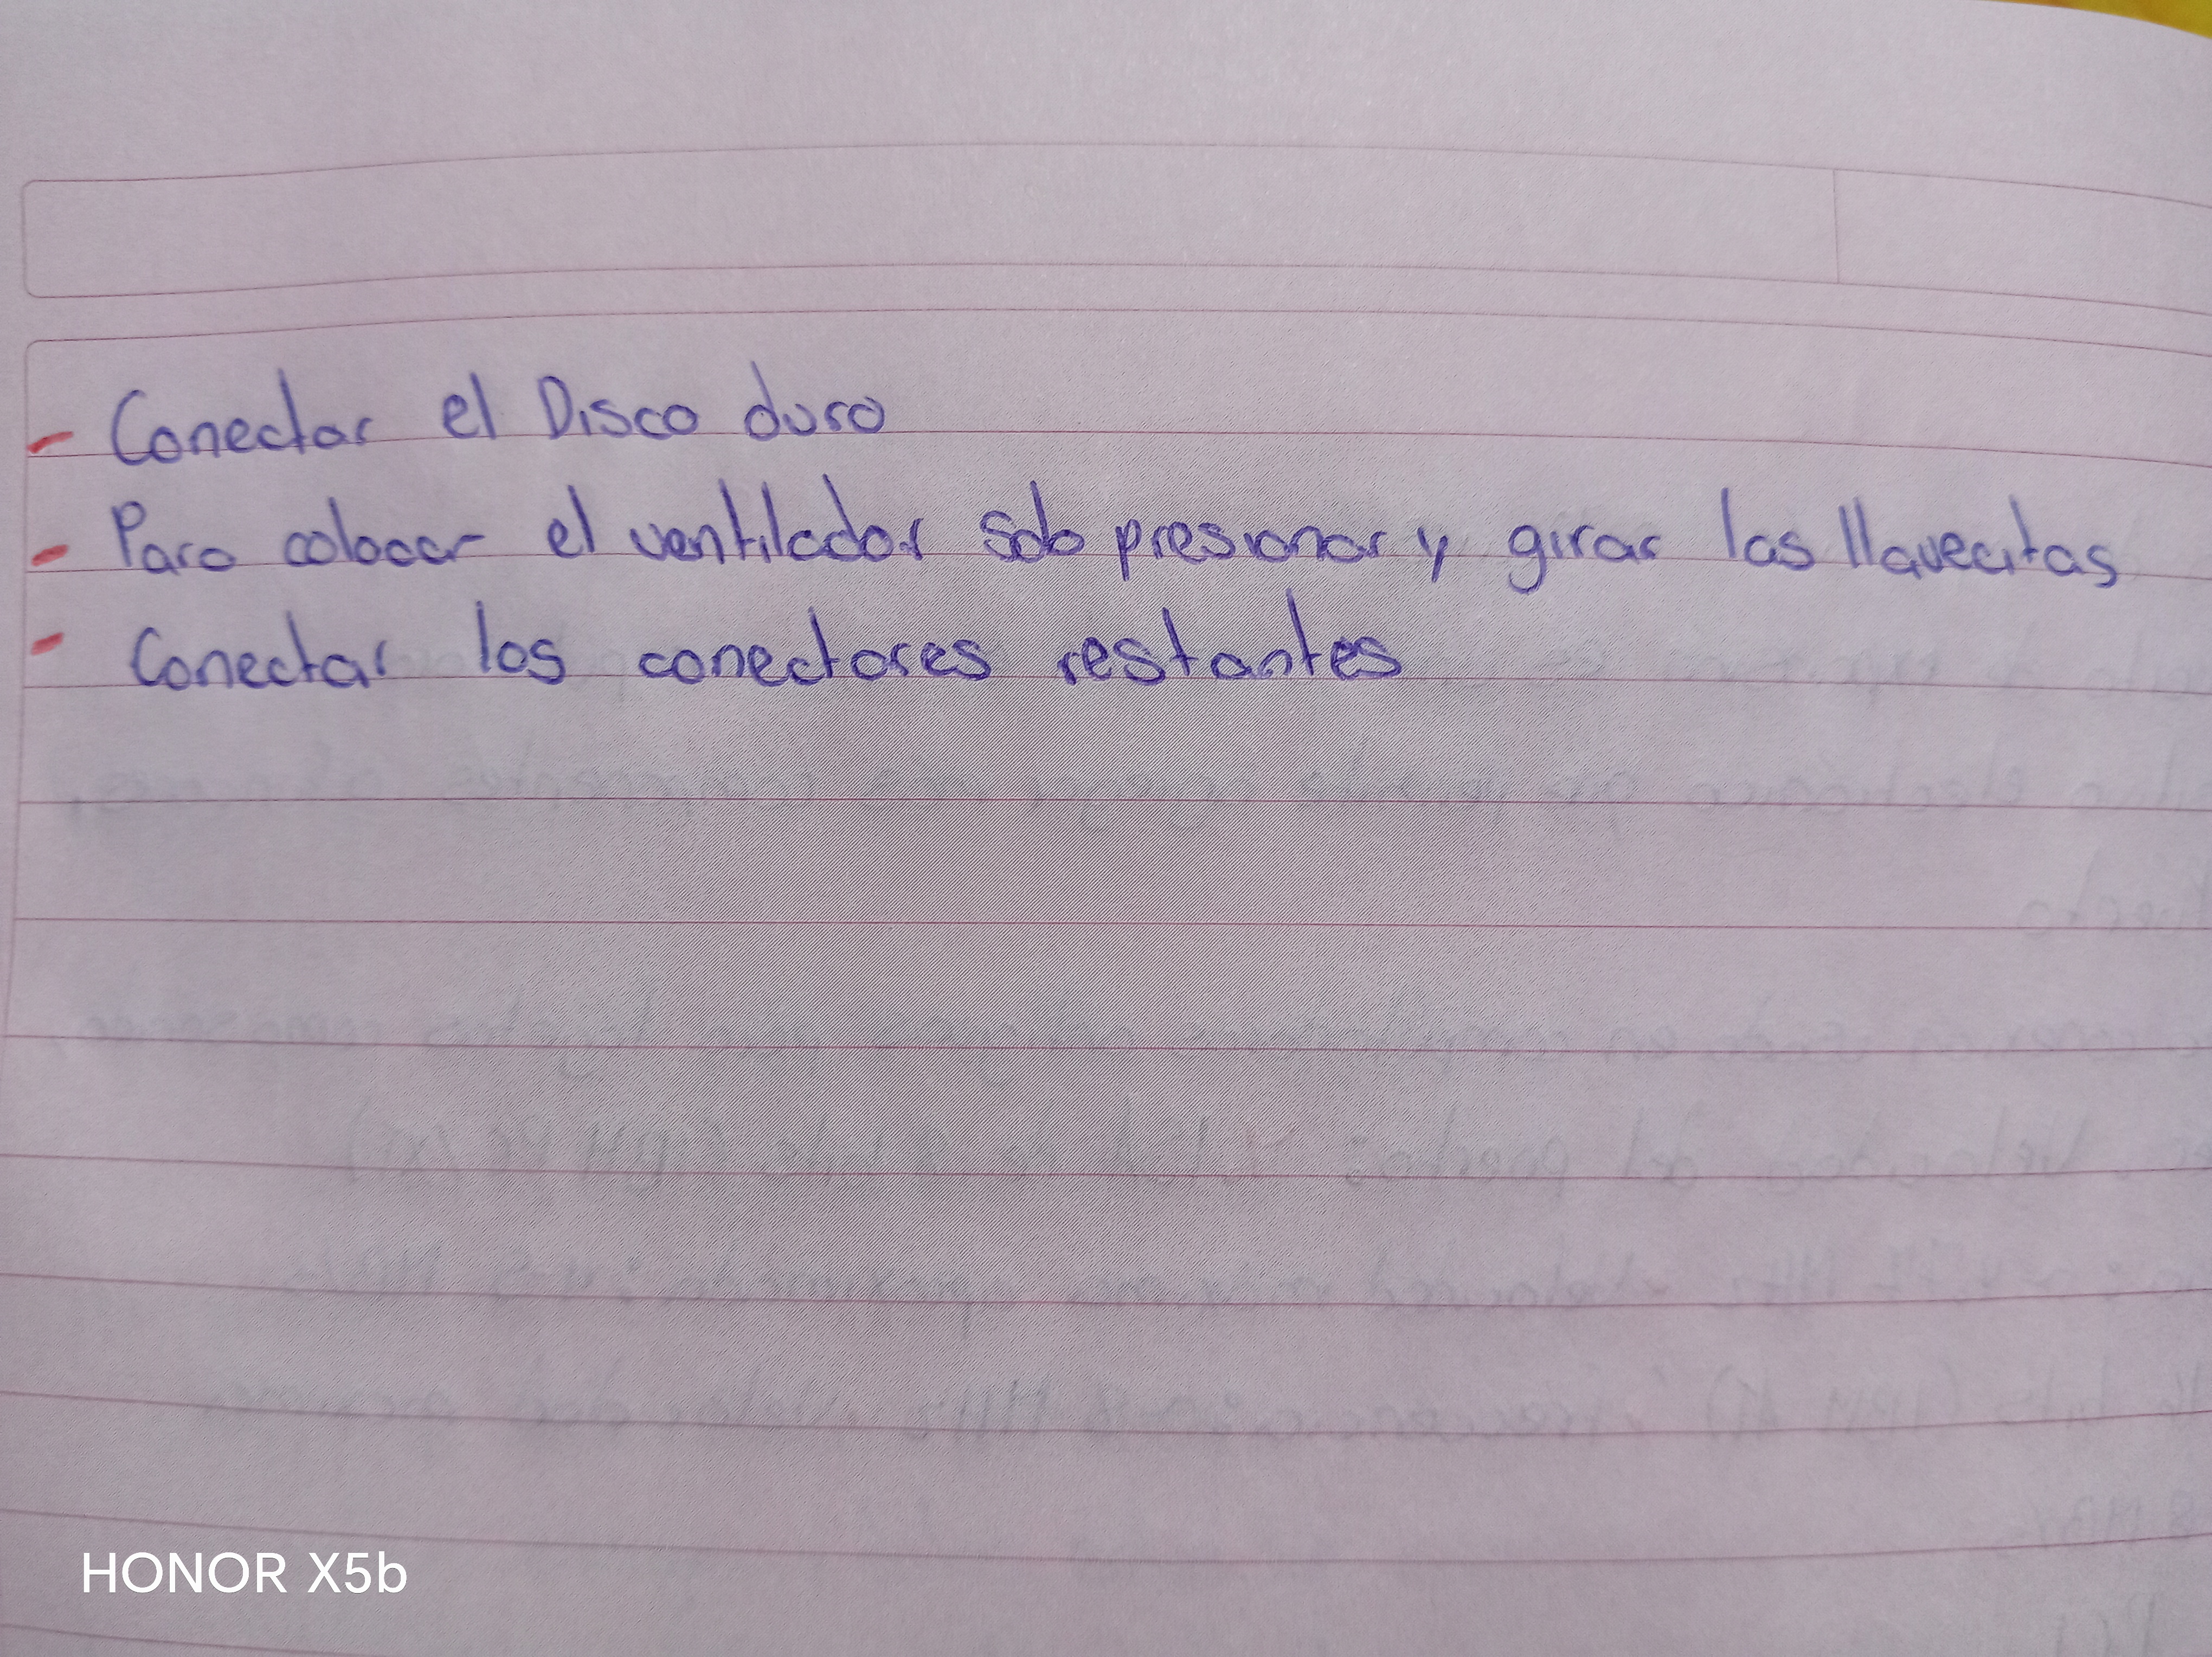 - Conectar el Disco duro
- Para colocar el ventilador solo presionar y girar las llavecitas
- Conectar los conectores restantes
HONOR X5b